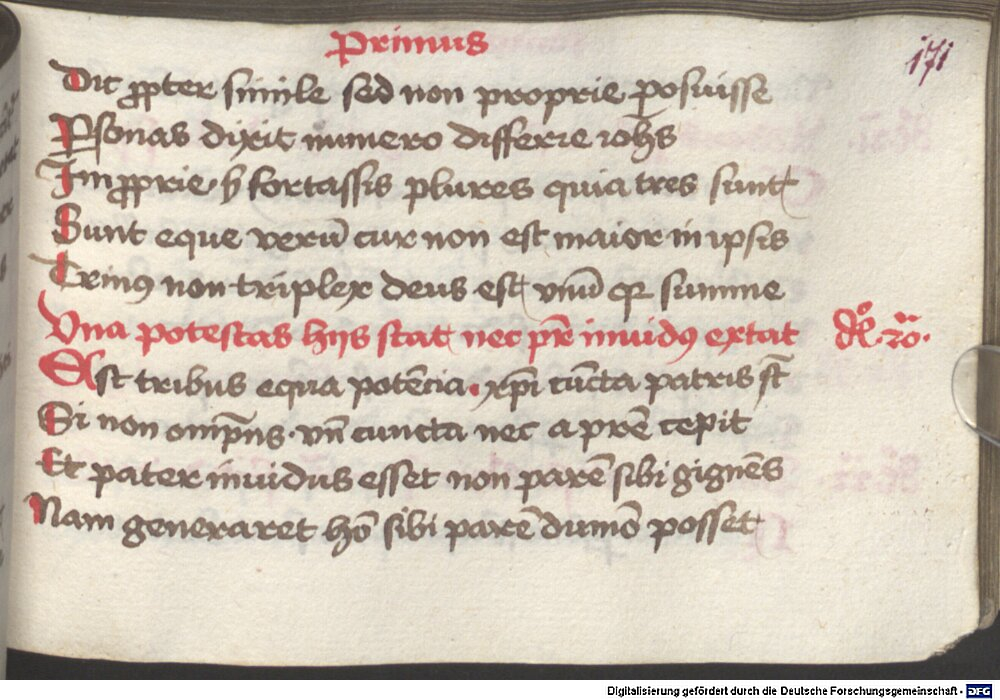 Primus
171
Dic ꝓpter simile sed non proprie posuisse
Psonas dixit numero differre ioh̄s
Imꝓprie · fortassis plures quia tres sunt
Sunt eque verū cur non est maior in ipsis
Trinꝰ non triplex deus est vnū qꝫ summe
Vna potestas hijs stat nec pr̄e inuidꝰ extat
Est tribus equa potēcia · xp̄i cūcta patris st̄
Si non omp̄ns · vn̄ cuncta nec a prē cepit
Et pater inuidus esset non parē sibi gignēs
Nam generaret hō sibi parē dūmō posset
Digitalisierung gefördert durch die Deutsche Forschungsgemeinschaft - DFG